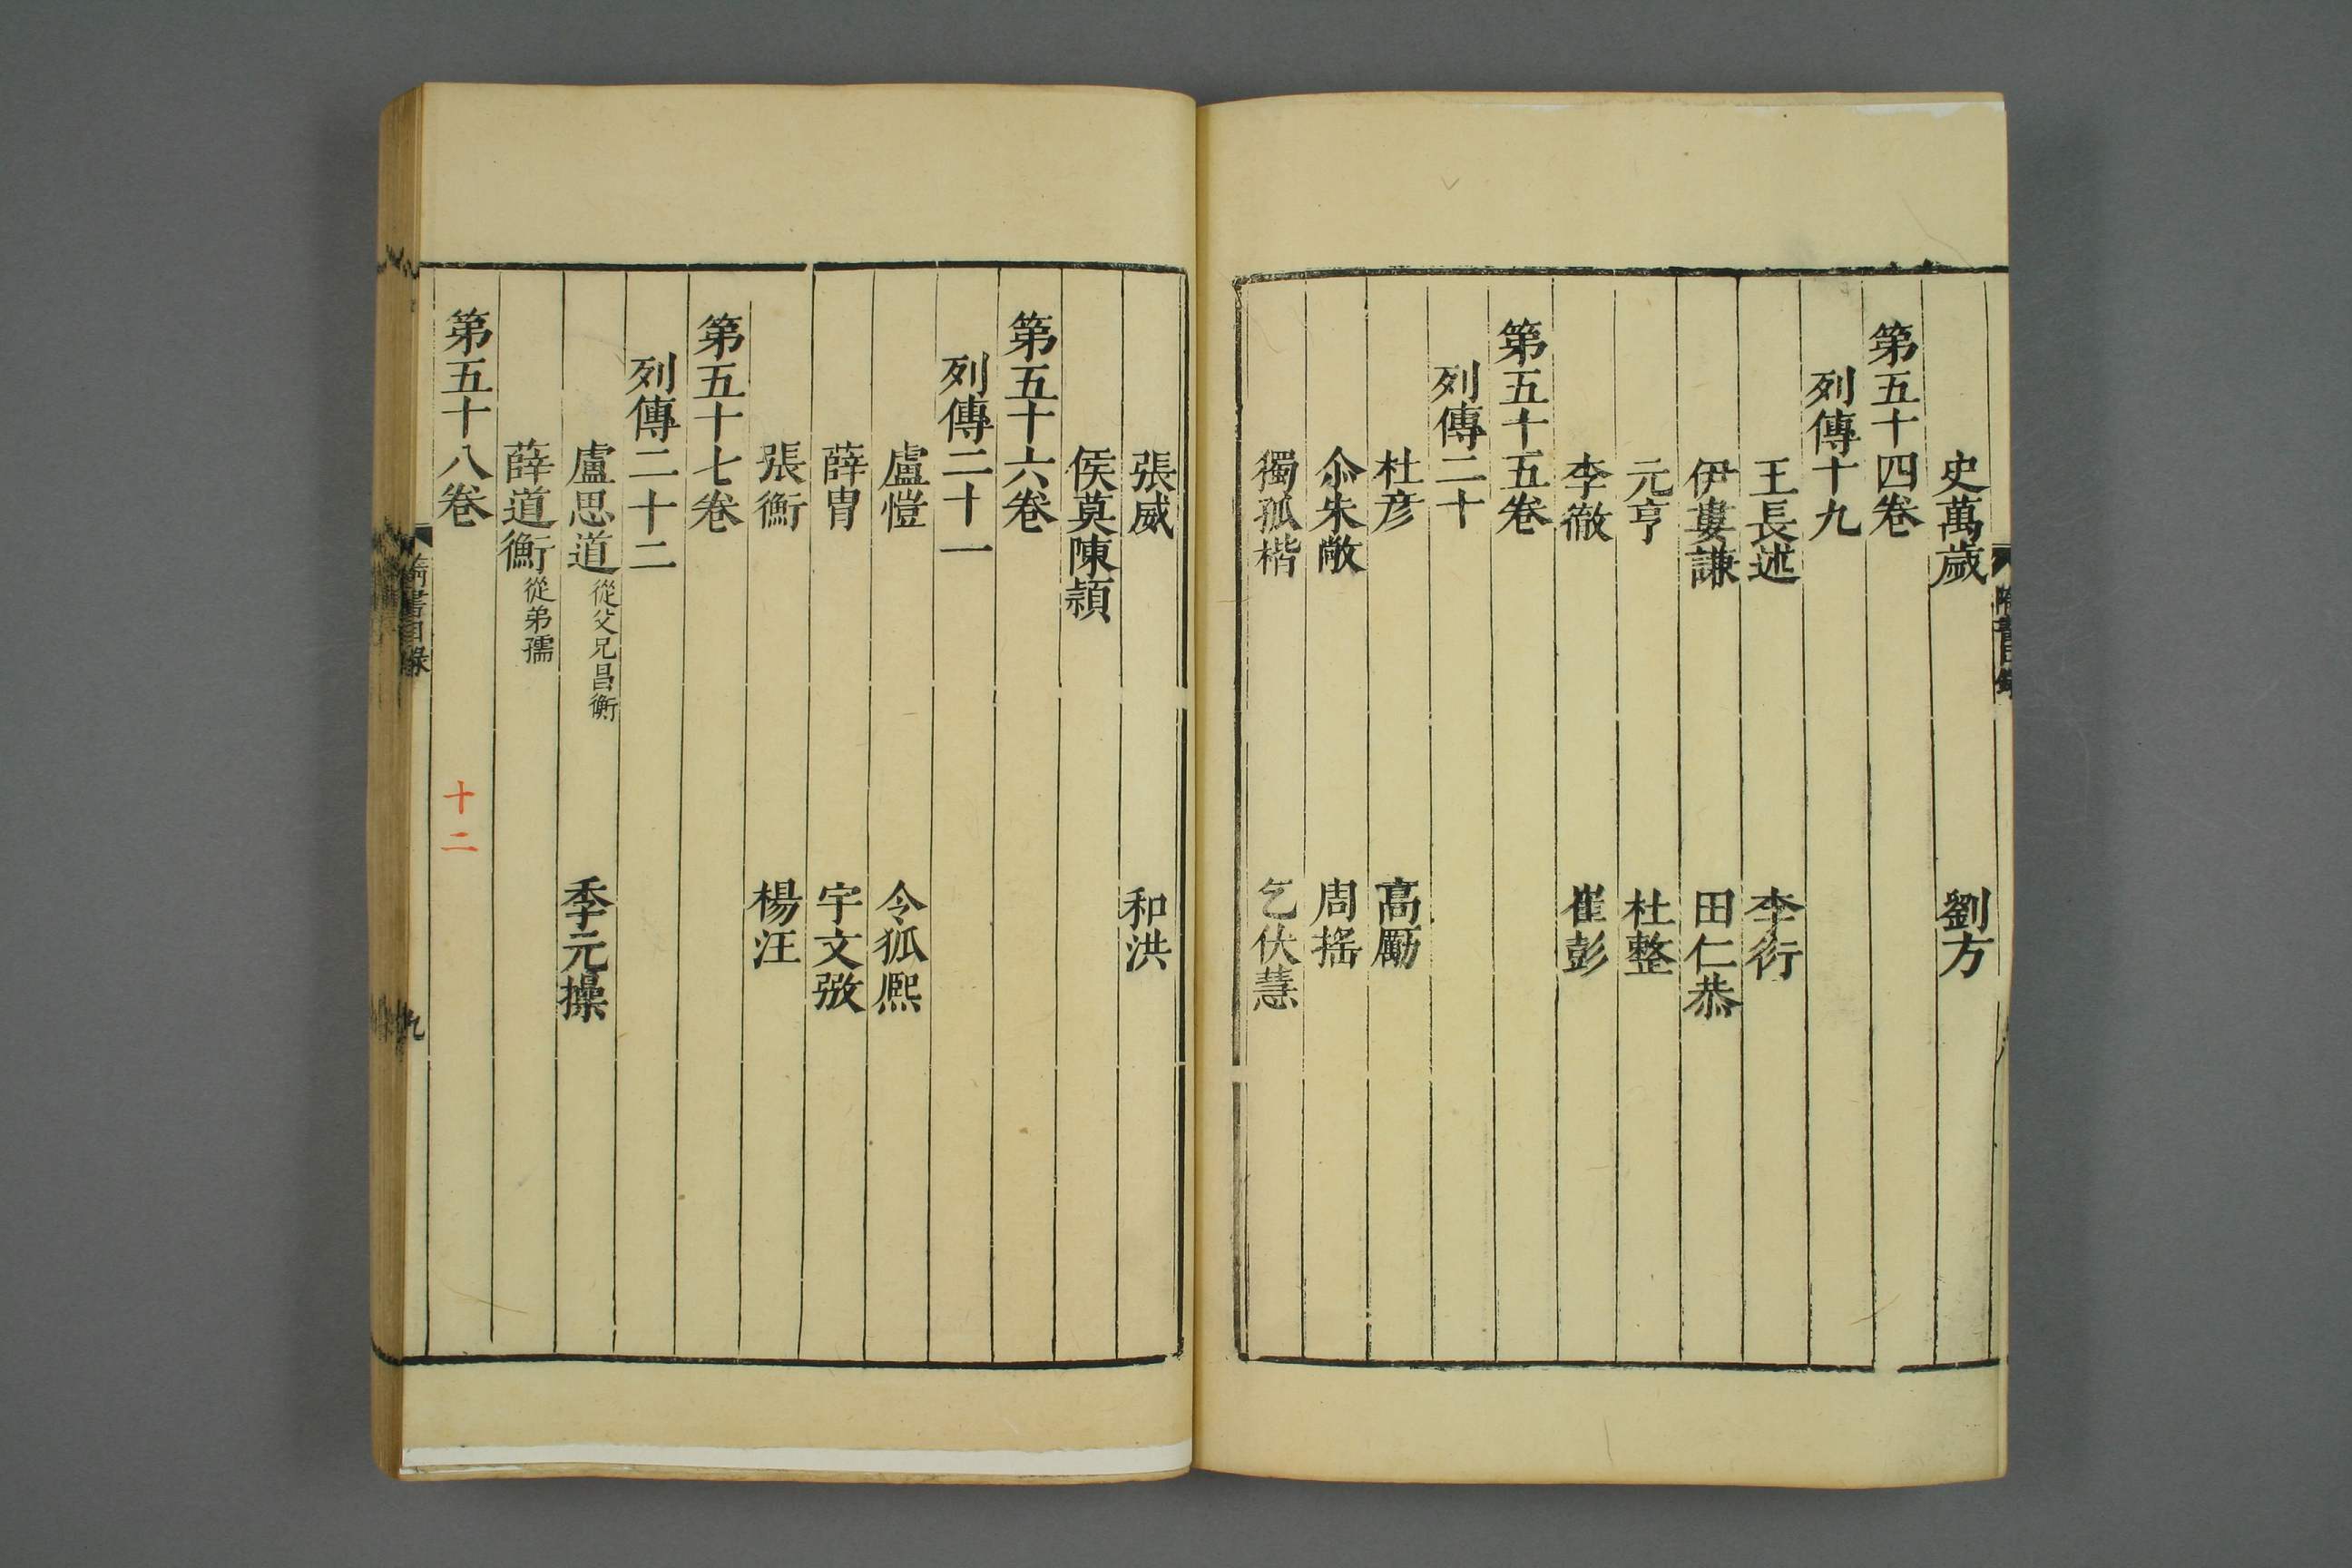 史萬歲 劉方
第五十四卷
列傳十九
王長述 李衍
伊婁謙 田仁恭
元亨 杜整
李徹 崔彭
第五十五卷
列傳二十
杜彥 高勵
尒朱敞 周搖
獨孤楷 乞伏慧
張威 和洪
侯莫陳頴
第五十六卷
列傳二十一
盧愷 令狐熈
薛冑 宇文㢸
張衡 楊汪
第五十七卷
列傳二十二
盧思道 從父兄昌衡 李元操
薛道衡 從弟孺
第五十八卷
隋書目錄
九
十二